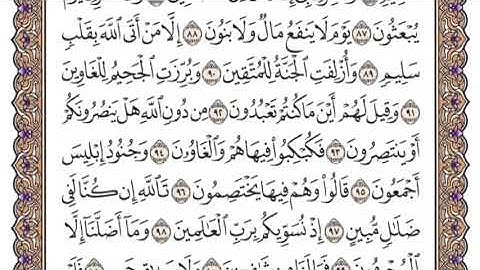 يُبْعَثُونَ ٨٧ يَوْمَ لَا يَنفَعُ مَالٌ وَلَا بَنُونَ ٨٨ إِلَّا مَنْ أَتَى ٱللَّهَ بِقَلْبٍ
سَلِيمٍ ٨٩ وَأُزْلِفَتِ ٱلْجَنَّةُ لِلْمُتَّقِينَ ٩٠ وَبُرِّزَتِ ٱلْجَحِيمُ لِلْغَاوِينَ
٩١ وَقِيلَ لَهُمْ أَيْنَ مَا كُنتُمْ تَعْبُدُونَ ٩٢ مِن دُونِ ٱللَّهِ هَلْ يَنصُرُونَكُمْ
أَوْ يَنتَصِرُونَ ٩٣ فَكُبْكِبُوا۟ فِيهَا هُمْ وَٱلْغَاوُۥنَ ٩٤ وَجُنُودُ إِبْلِيسَ
أَجْمَعُونَ ٩٥ قَالُوا۟ وَهُمْ فِيهَا يَخْتَصِمُونَ ٩٦ تَٱللَّهِ إِن كُنَّا لَفِى
ضَلَٰلٍ مُّبِينٍ ٩٧ إِذْ نُسَوِّيكُم بِرَبِّ ٱلْعَٰلَمِينَ ٩٨ وَمَآ أَضَلَّنَآ إِلَّا